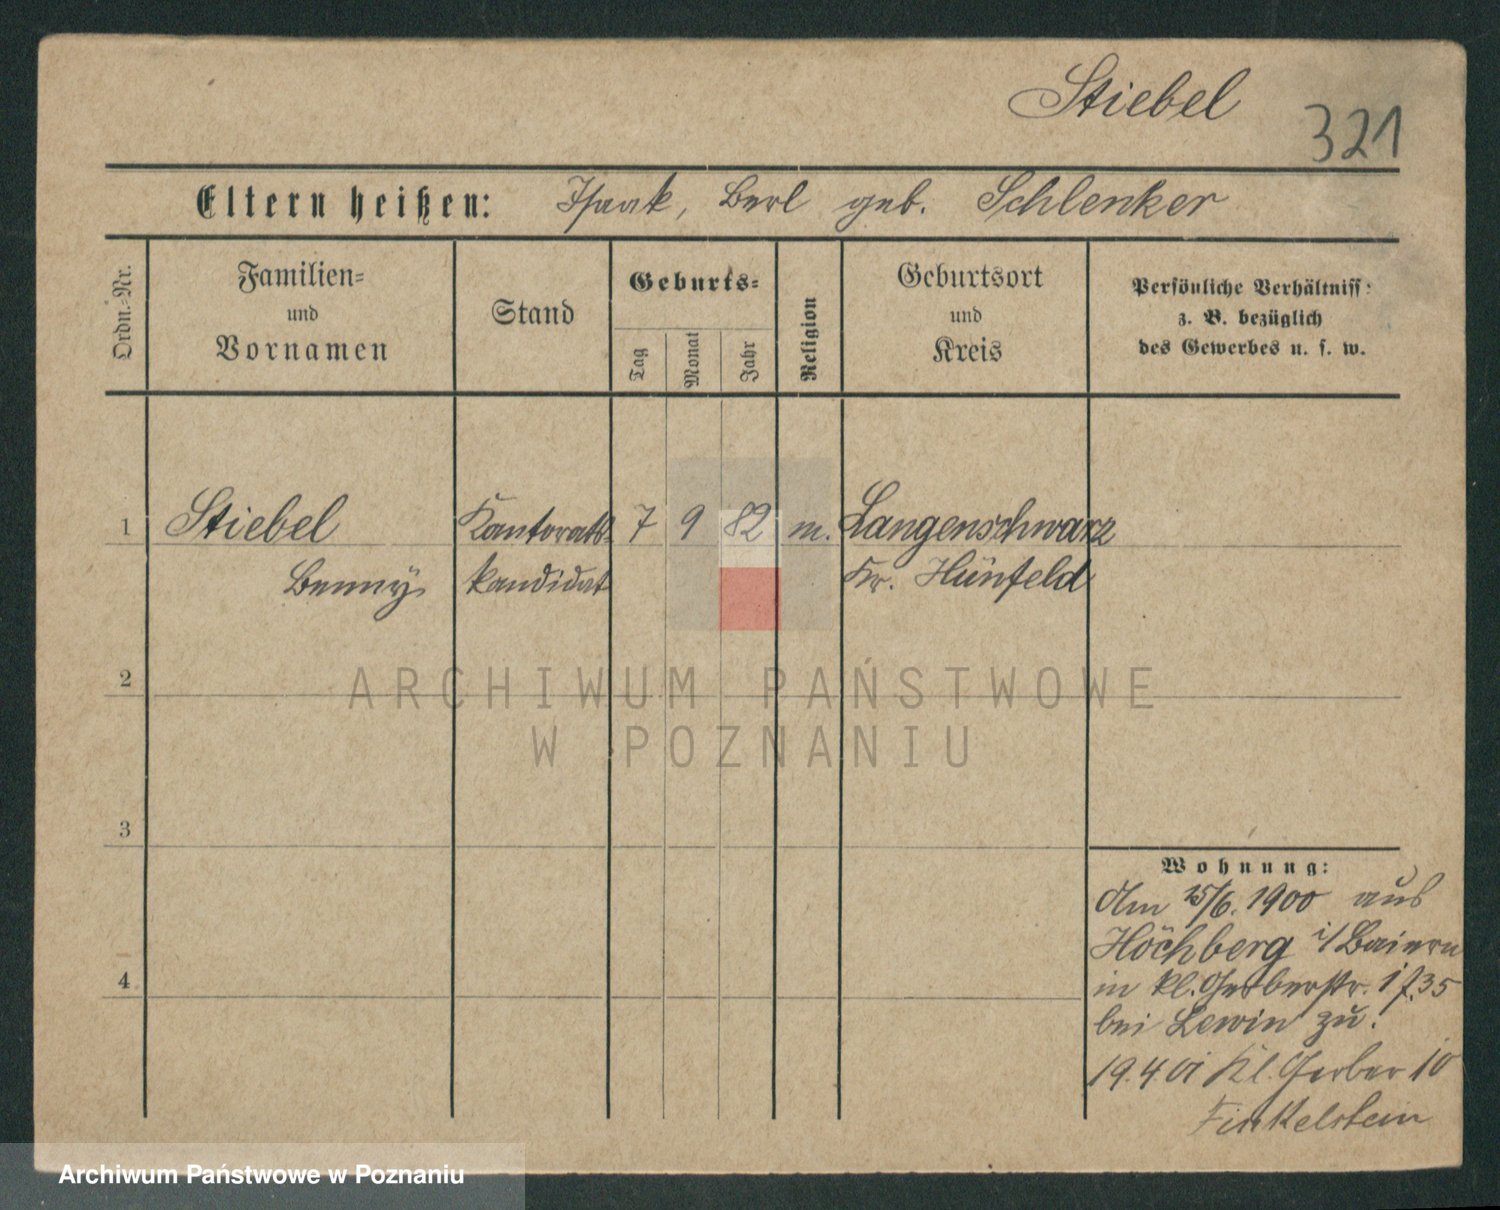 Stiebel
321
Eltern heißen: Isaak, Berl geb. Schlenker
Ordn.-Nr.
Familien-
und
Vornamen
Stand
Geburts-
Tag
Monat
Jahr
Religion
Geburtsort
und
Kreis
Persönliche Verhältniss:
z. B. bezüglich
des Gewerbes u. s. w.
1 Stiebel Kantorats- 7 9 82 m. Langenschwarz
Benny kandidat Kr. Hünfeld
2
3
4
Wohnung:
Am 15/6. 1900 aus
Höchberg i/Baiern
in kl. Gerberstr.
bei Lewin zu.
19.4.01 Kl. Gerber 10
Finkelstein
ARCHIWUM PAŃSTWOWE
W POZNANIU
Archiwum Państwowe w Poznaniu